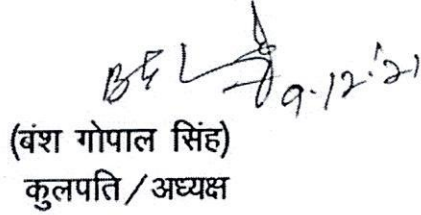 9.12.21
(बंश गोपाल सिंह)
कुलपति/अध्यक्ष